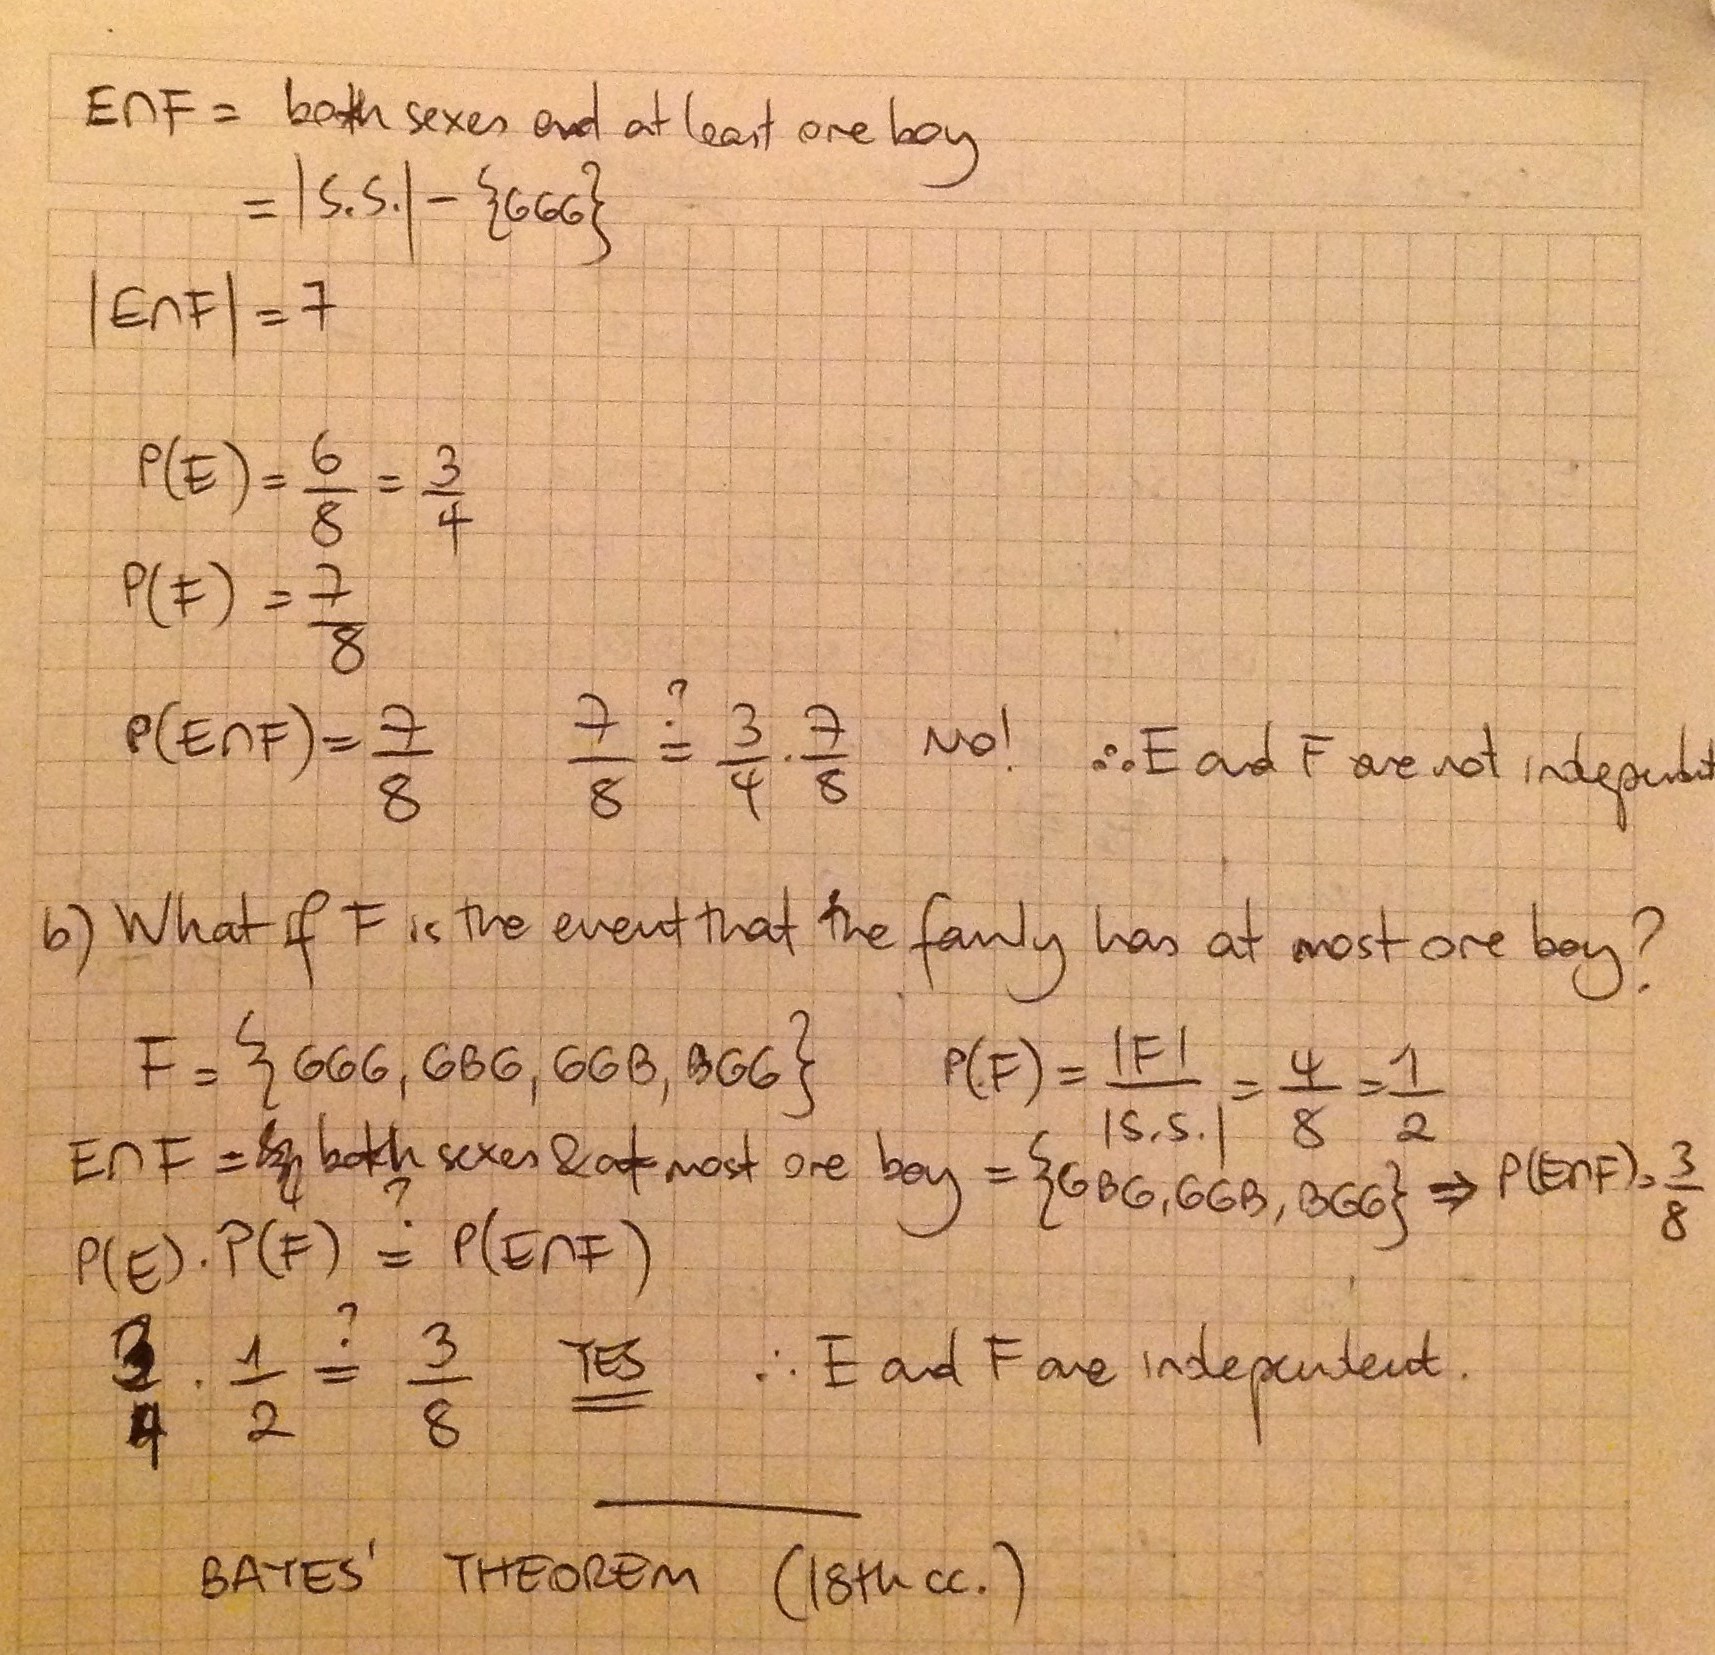 E∩F = both sexes and at least one boy
= |S.S.| - {GGG}
|E∩F| = 7
P(E) = 6/8 = 3/4
P(F) = 7/8
P(E∩F) = 7/8 7/8 ?= 3/4 · 7/8 No! ∴ E and F are not independent
b) What if F is the event that the family has at most one boy?
F = {GGG, GBG, GGB, BGG} P(F) = |F|/|S.S.| = 4/8 = 1/2
E∩F = both sexes & at most one boy = {GBG, GGB, BGG} ⇒ P(E∩F) = 3/8
P(E) · P(F) ?= P(E∩F)
3/4 · 1/2 ?= 3/8 YES ∴ E and F are independent.
BAYES' THEOREM (18th cc.)